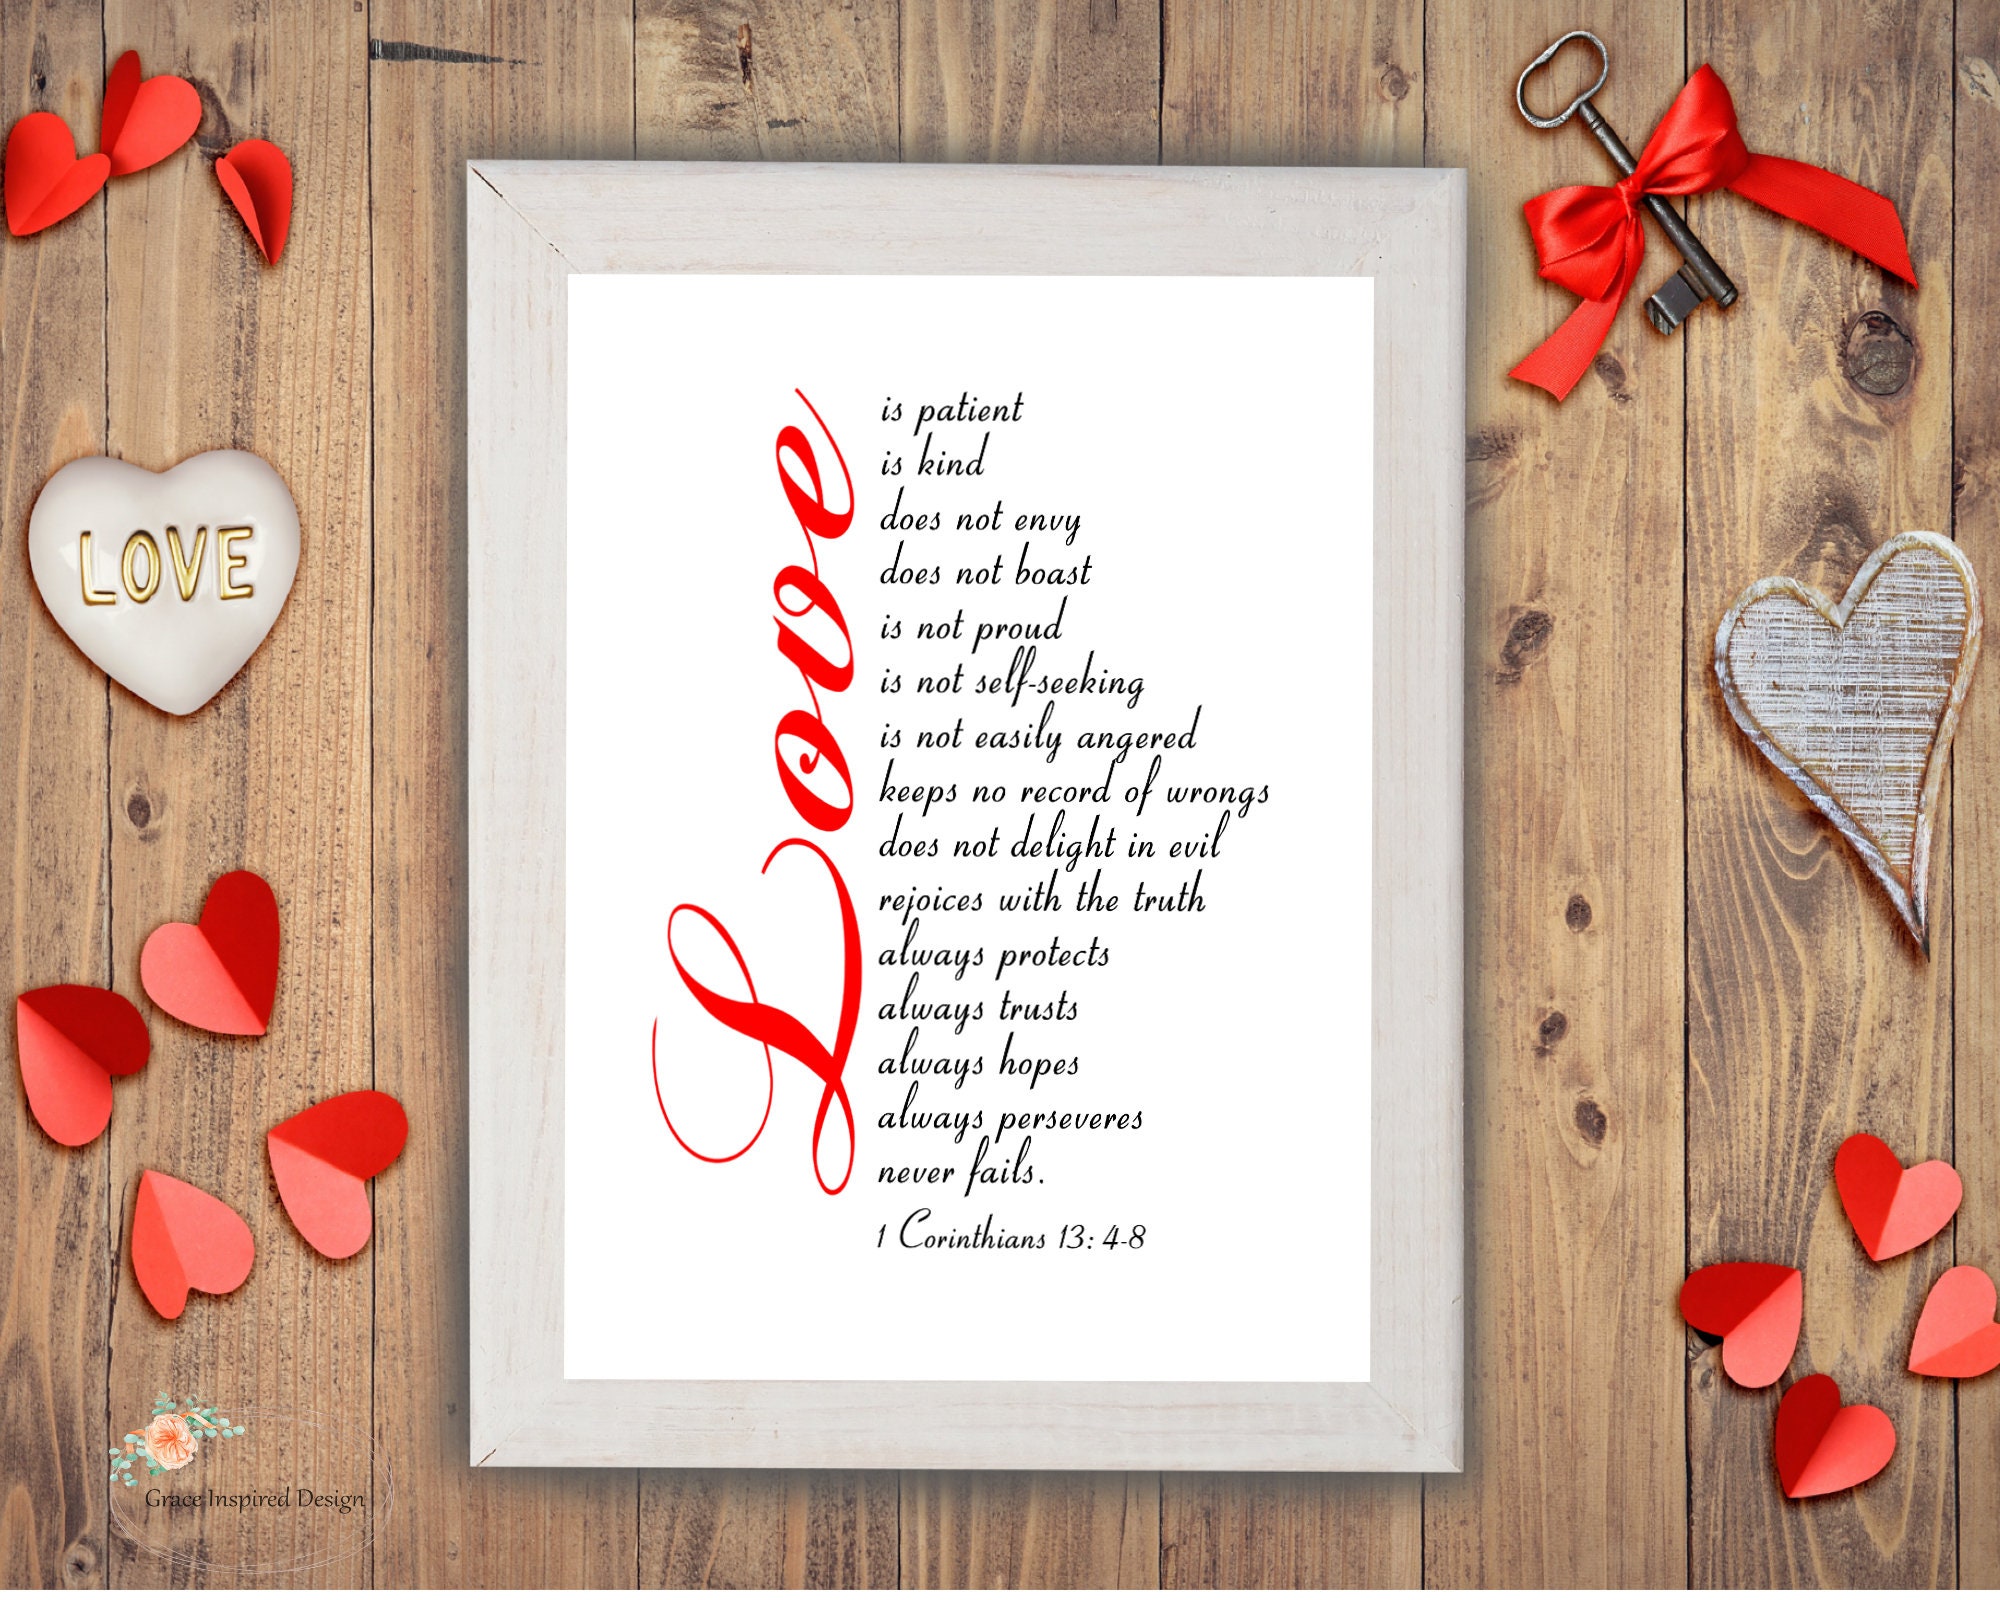 LOVE
Love
is patient
is kind
does not envy
does not boast
is not proud
is not self-seeking
is not easily angered
keeps no record of wrongs
does not delight in evil
rejoices with the truth
always protects
always trusts
always hopes
always perseveres
never fails.
1 Corinthians 13: 4-8
Grace Inspired Design